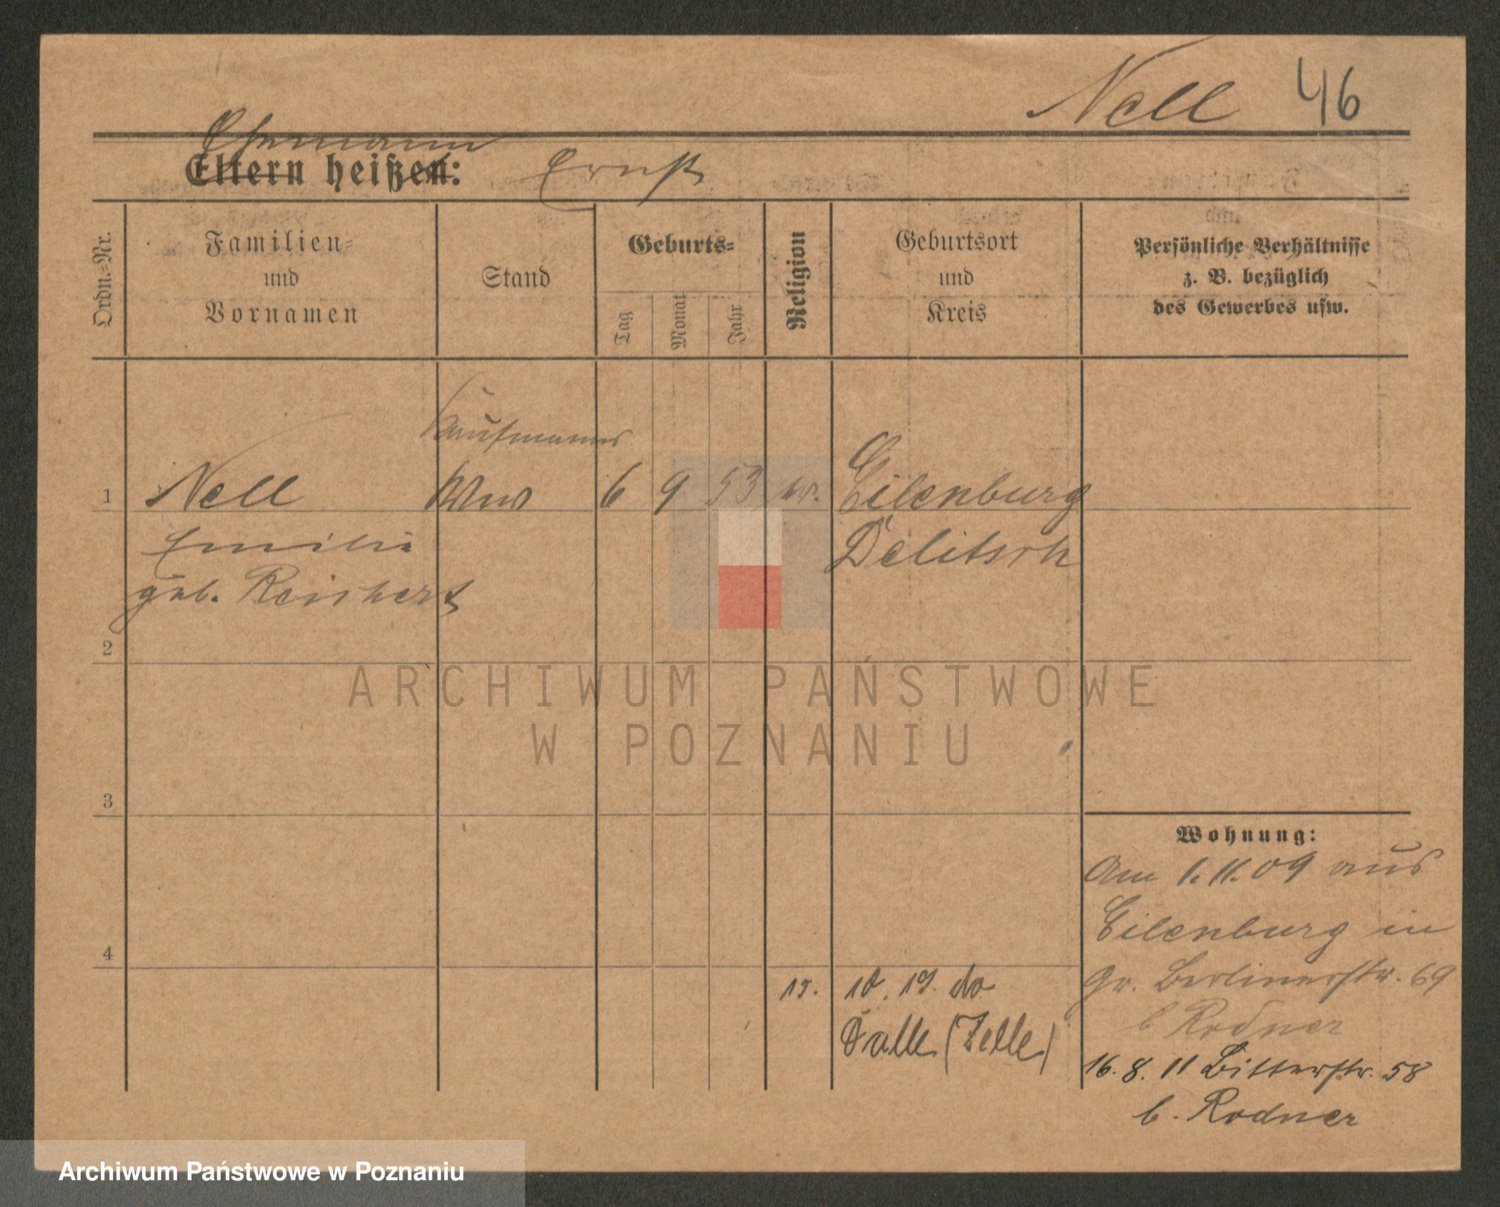 Nell 46
Ehemann
Eltern heißen: Ernst
Ordn.-Nr.
Familien-
und
Vornamen
Stand
Geburts-
Tag
Monat
Jahr
Religion
Geburtsort
und
Kreis
Persönliche Verhältnisse
z. B. bezüglich
des Gewerbes usw.
Kaufmanns
1 Nell Wwe 6 9 53 ev. Eilenburg
Emilie Delitsch
geb. Reichert
2
3
4
Wohnung:
Am 1.11.09 aus
Eilenburg in
Gr. Berlinerstr. 69
b Rodner
16.8.11 Bitterstr. 58
b. Rodner
15. 10. 19.
ARCHIWUM PAŃSTWOWE
W POZNANIU
Archiwum Państwowe w Poznaniu